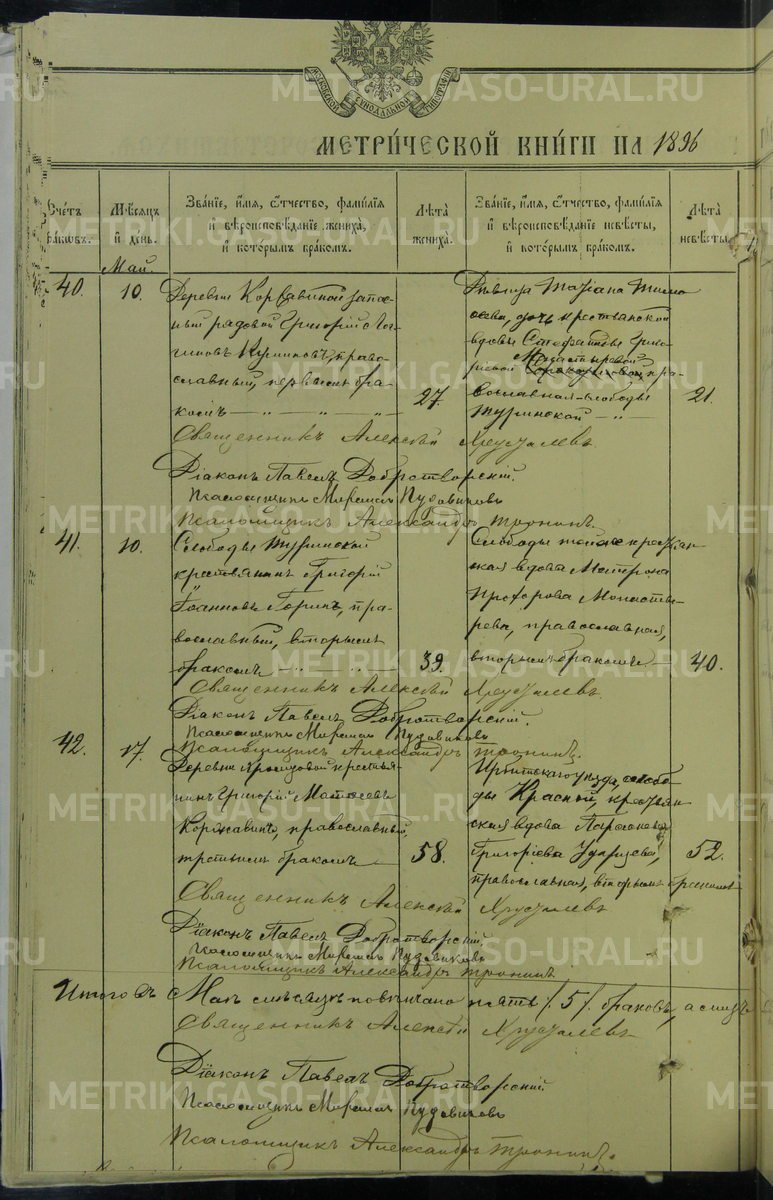 МОСКОВСКОЙ СѴНОДАЛЬНОЙ ТИПОГРАФІИ
МЕТРИ́ЧЕСКОЙ КНИ́ГИ НА 1896
Сче́тъ бра́ковъ.
Мѣ́сяцъ и҆ де́нь.
Зва́нїе, и҆́мѧ, ѻ҆́тчество, фами́лїѧ и҆ вѣроисповѣ́данїе жениха̀, и҆ кото́рымъ бра́комъ.
Лѣ́та жениха̀.
Зва́нїе, и҆́мѧ, ѻ҆́тчество, фами́лїѧ и҆ вѣроисповѣ́данїе невѣ́сты, и҆ кото́рымъ бра́комъ.
Лѣ́та невѣ́сты.
Май.
40.
10.
Деревни Коржавиной запас-
ный рядовой Григорій
Куминовъ, право-
славный, первымъ бра-
комъ — „ — „ — „ —
27.
Дѣвица Татіана Тимо-
ѳеева, дочь крестьянской
вдовы Стефаниды Григо-
рьевой Монастыревой пра-
вославная — слободы
Туринской — „ —
21.
Священникъ Алексѣй Хрусталевъ
Діаконъ Павелъ Добротворскій.
Псаломщикъ Пудовиковъ
Псаломщикъ Александръ Тронинъ.
41.
10.
Слободы Туринской
крестьянинъ Григорій
Іоанновъ Горинъ, пра-
вославный, вторымъ
бракомъ — „ — „ —
39.
Слободы той же крестьян-
ская вдова Матрона
Прохорова Монасты-
рева, православная,
вторымъ бракомъ —
40.
Священникъ Алексѣй Хрусталевъ
Діаконъ Павелъ Добротворскій.
Псаломщикъ Пудовиковъ
Псаломщикъ Александръ Тронинъ.
42.
17.
Деревни крестья-
нинъ Григорій Матѳеевъ
Коржавинъ, православный,
третьимъ бракомъ —
58.
Ирбитскаго уѣзда, слобо-
ды Красной, крестьян-
ская вдова
Григоріева Ударцева,
православная, вторымъ бракомъ
52.
Священникъ Алексѣй Хрусталевъ
Діаконъ Павелъ Добротворскій,
Псаломщикъ Пудовиковъ
Псаломщикъ Александръ Тронинъ
Итого въ Маѣ мѣсяцѣ повѣнчано пять /5/ браковъ, а
Священникъ Алексѣй Хрусталевъ
Діаконъ Павелъ Добротворскій
Псаломщикъ Пудовиковъ
Псаломщикъ Александръ Тронинъ.
METRIKI.GASO-URAL.RU